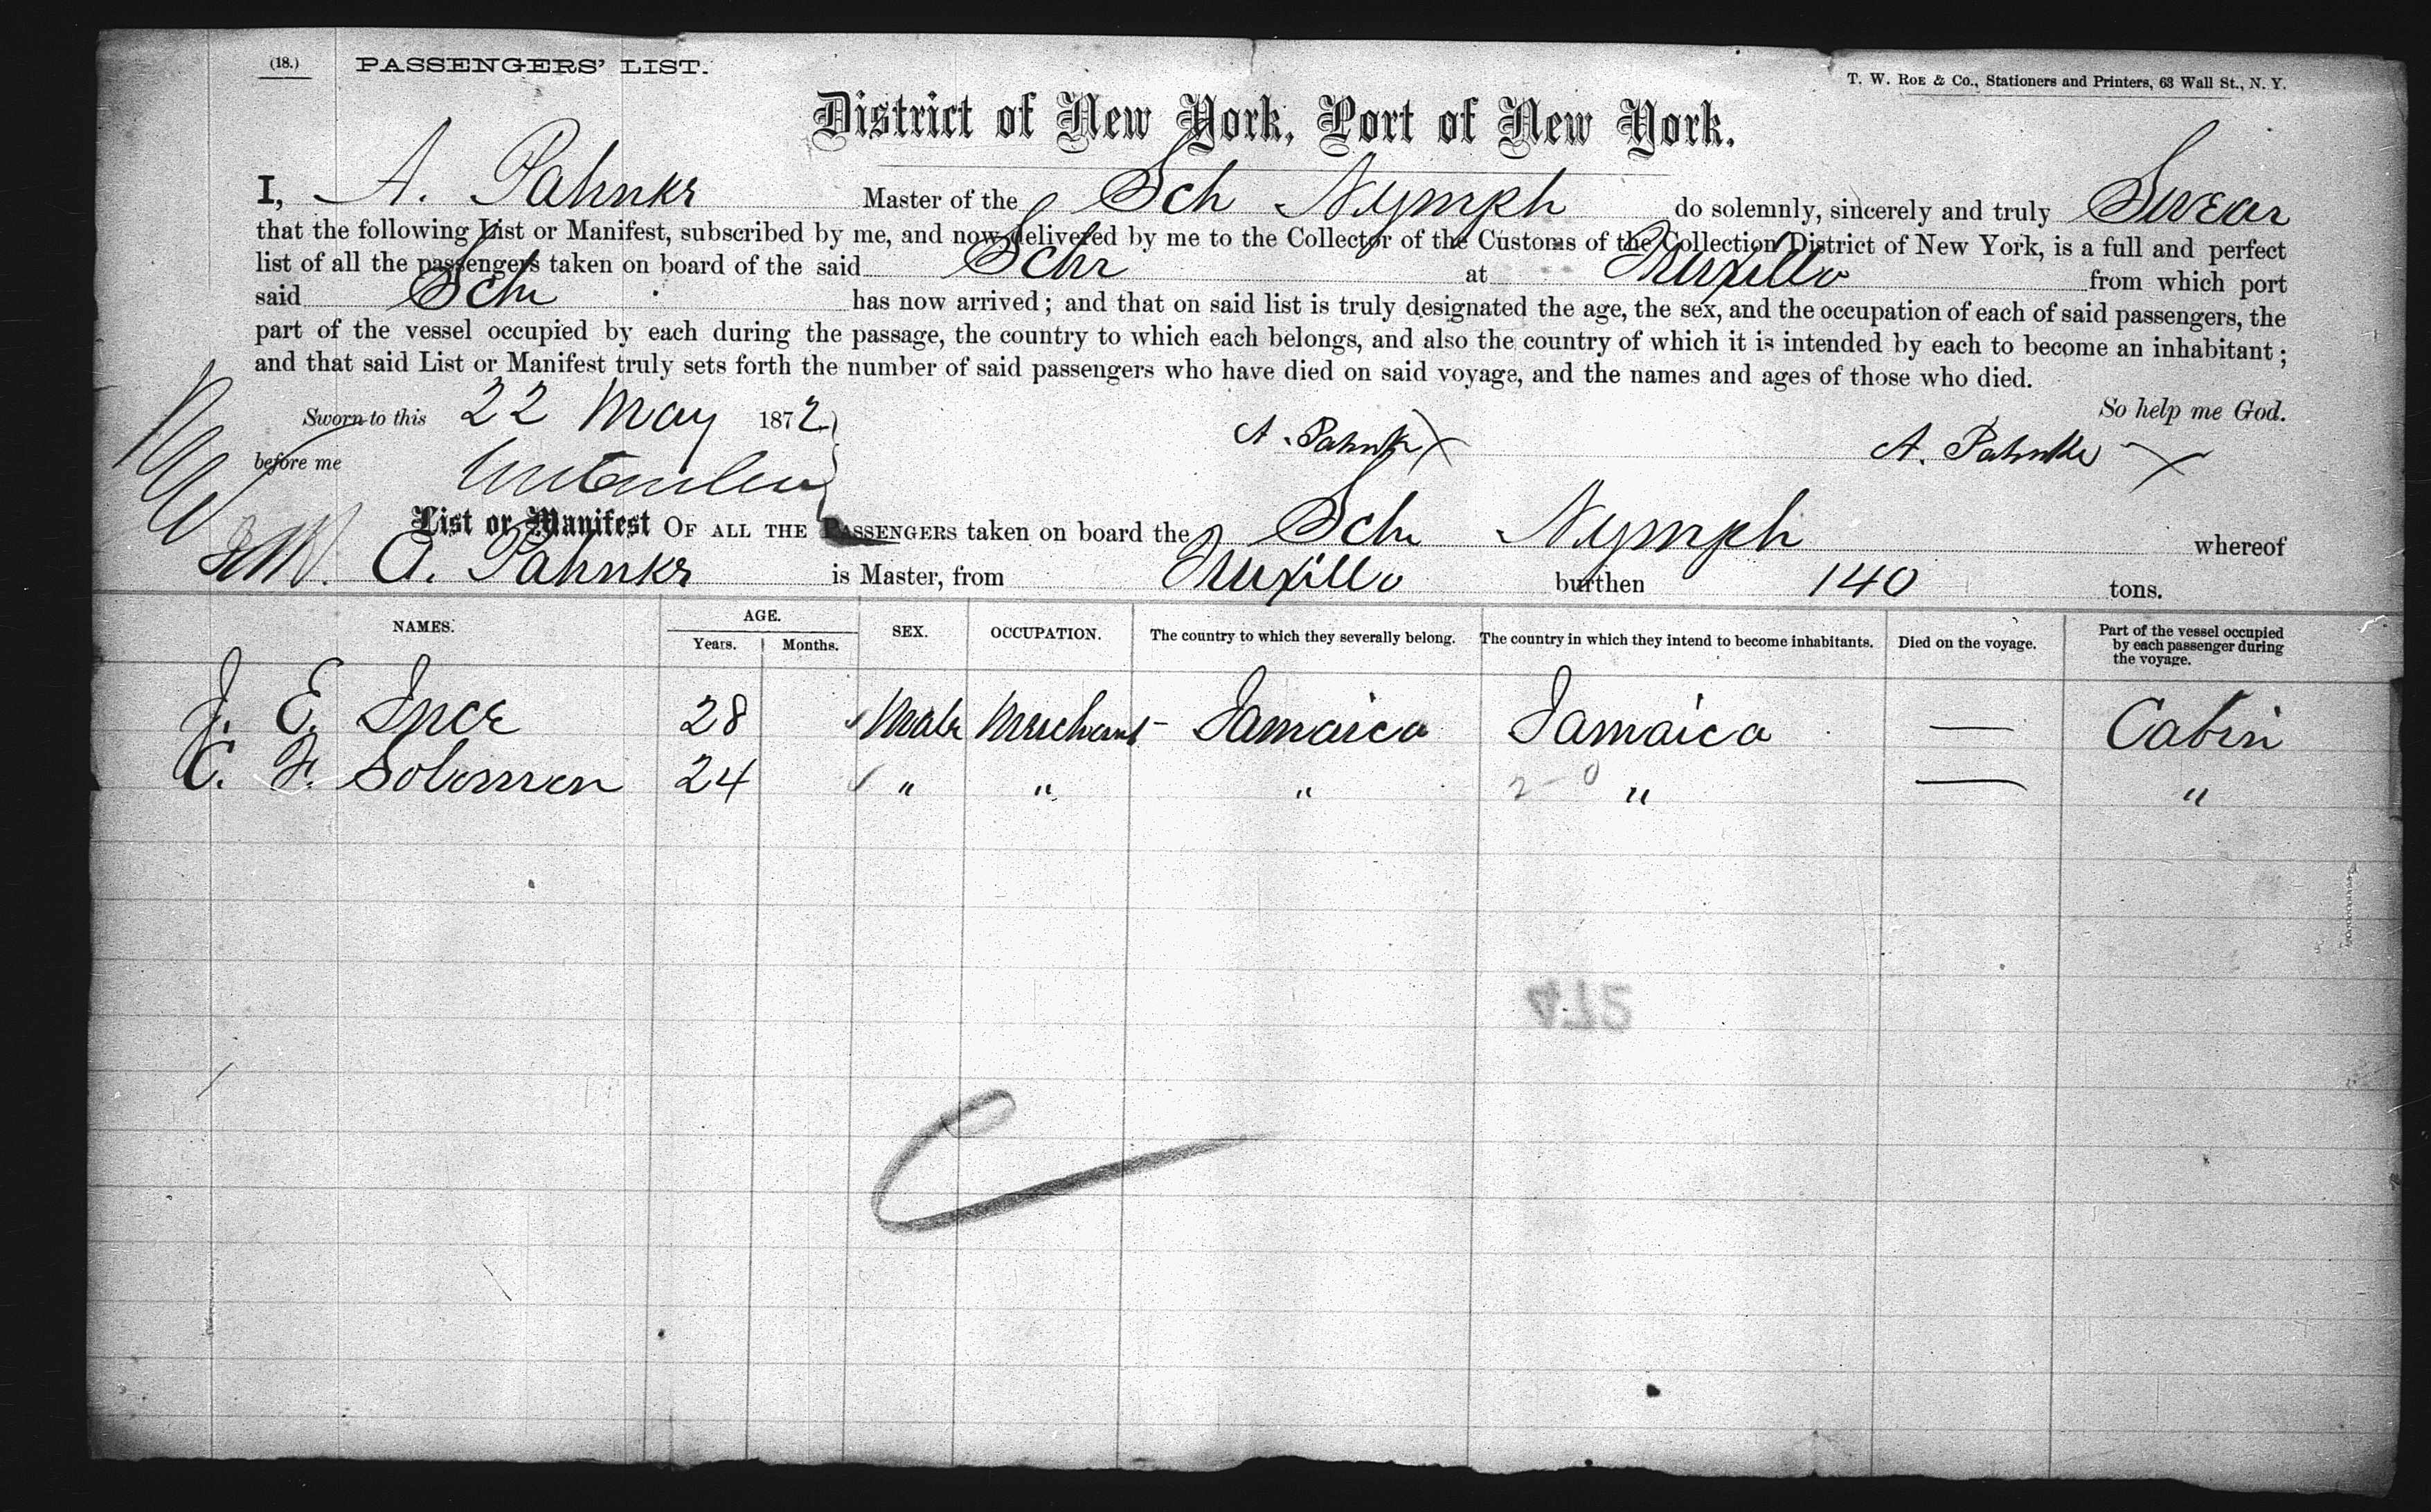 (18.) PASSENGERS' LIST.
T. W. Roe & Co., Stationers and Printers, 63 Wall St., N. Y.
District of New York, Port of New York.
I, A. Pahnke Master of the Sch Nymph do solemnly, sincerely and truly Swear
that the following List or Manifest, subscribed by me, and now delivered by me to the Collector of the Customs of the Collection District of New York, is a full and perfect
list of all the passengers taken on board of the said Schr at Truxillo from which port
said Schr has now arrived; and that on said list is truly designated the age, the sex, and the occupation of each of said passengers, the
part of the vessel occupied by each during the passage, the country to which each belongs, and also the country of which it is intended by each to become an inhabitant;
and that said List or Manifest truly sets forth the number of said passengers who have died on said voyage, and the names and ages of those who died.
So help me God.
Sworn to this 22 May 1872
A. Pahnke X A. Pahnke X
before me
List or Manifest OF ALL THE PASSENGERS taken on board the Schr Nymph whereof
A. Pahnke is Master, from Truxillo burthen 140 tons.
NAMES. AGE. SEX. OCCUPATION. The country to which they severally belong. The country in which they intend to become inhabitants. Died on the voyage. Part of the vessel occupied by each passenger during the voyage.
Years. Months.
J. E. Ince 28 Male Merchant Jamaica Jamaica — Cabin
C. F. Solomon 24 " " " 2-0 " — "
472